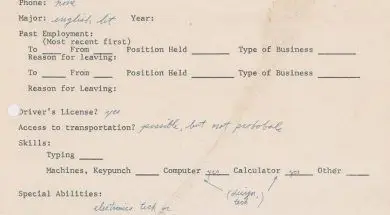 Phone: none
Major: english lit Year:
Past Employment:
(Most recent first)
To ____ From ____ Position Held ______ Type of Business ______
Reason for leaving:
To ____ From ____ Position Held ______ Type of Business ______
Reason for Leaving:
Driver's License? yes
Access to transportation? possible, but not probable
Skills:
Typing ____
Machines, Keypunch ____ Computer yes Calculator yes Other ____
(design,
tech)
Special Abilities:
electronics tech or